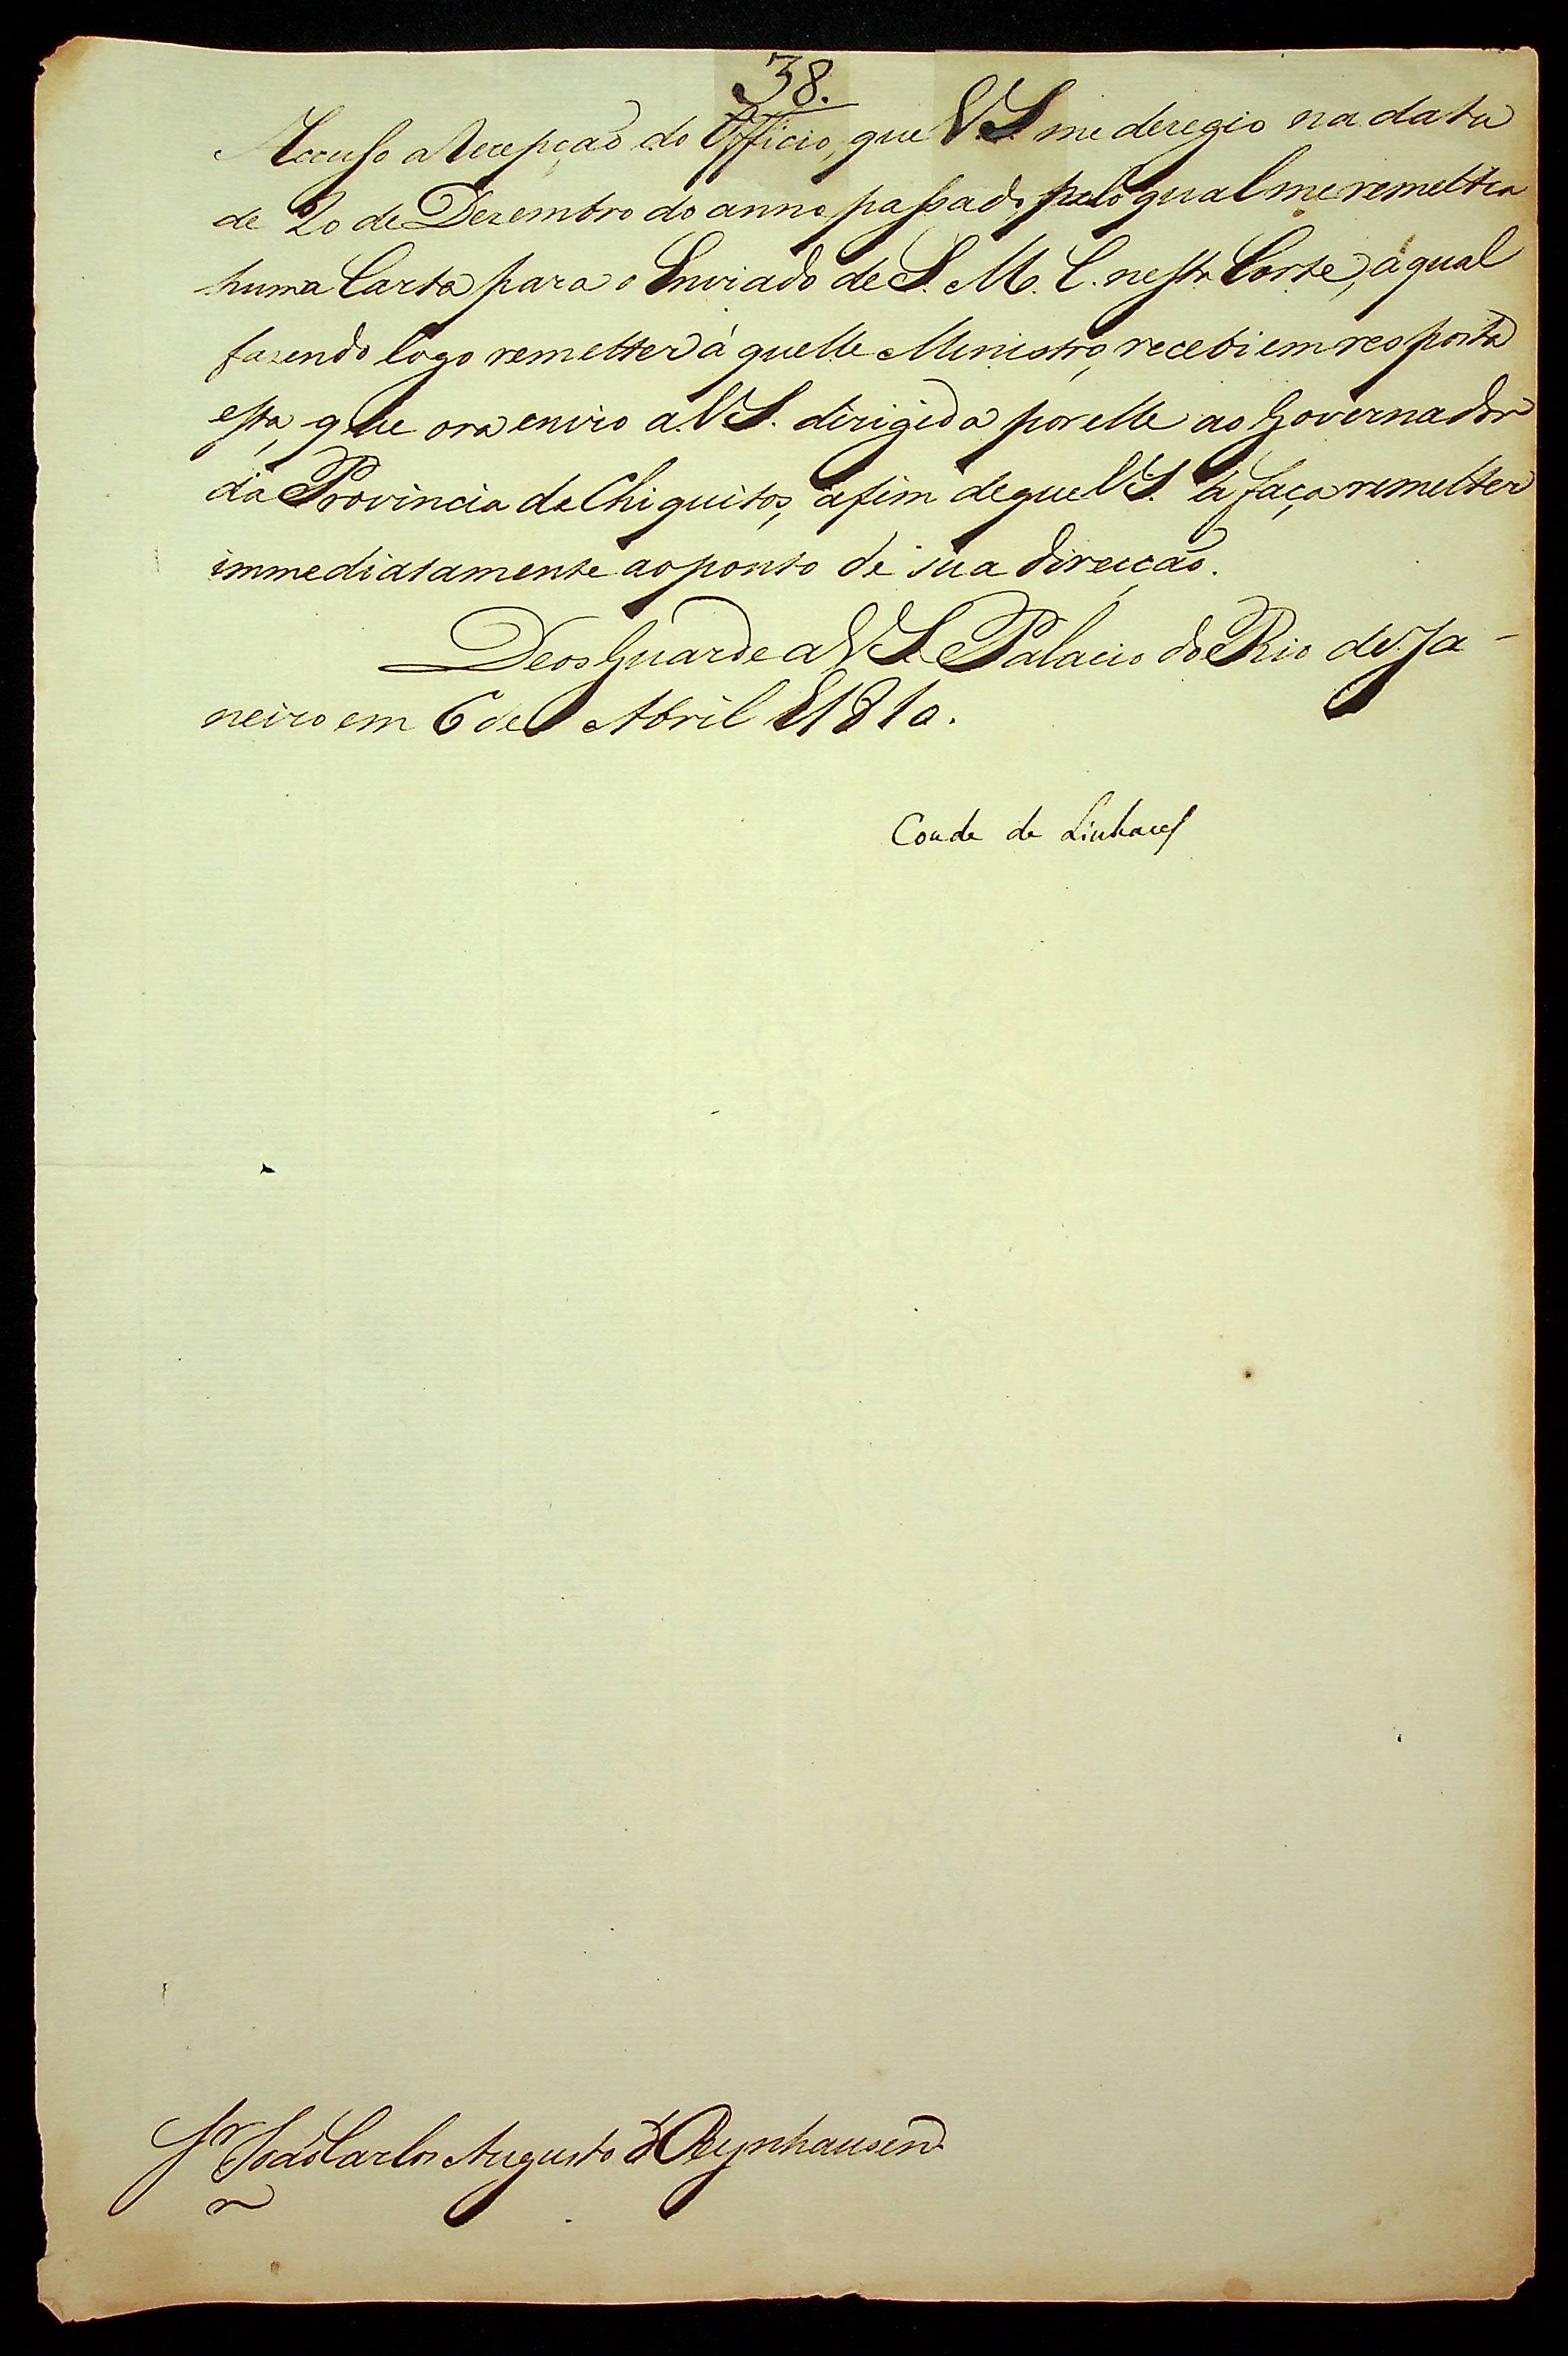 38.
Accuso a recepçaõ do Officio, que V.S. me deregio na data
de 20 de Dezembro do anno passado, pelo qual me remettia
huma Carta para o Enviado de S. M. C. nesta Corte, a qual
fazendo logo remetter á quelle Ministro, recebi em resposta
esta, que ora envio a V.S. dirigida por elle ao Governador
da Provincia de Chiquitos, afim de que V.S. a faça remetter
immediatamente ao ponto de sua direcçaõ.
Deos Guarde a V.S. Palacio do Rio de Ja-
neiro em 6 de Abril 1810.
Conde de Linhares
Sr. Joaõ Carlos Augusto d'Oeynhausen